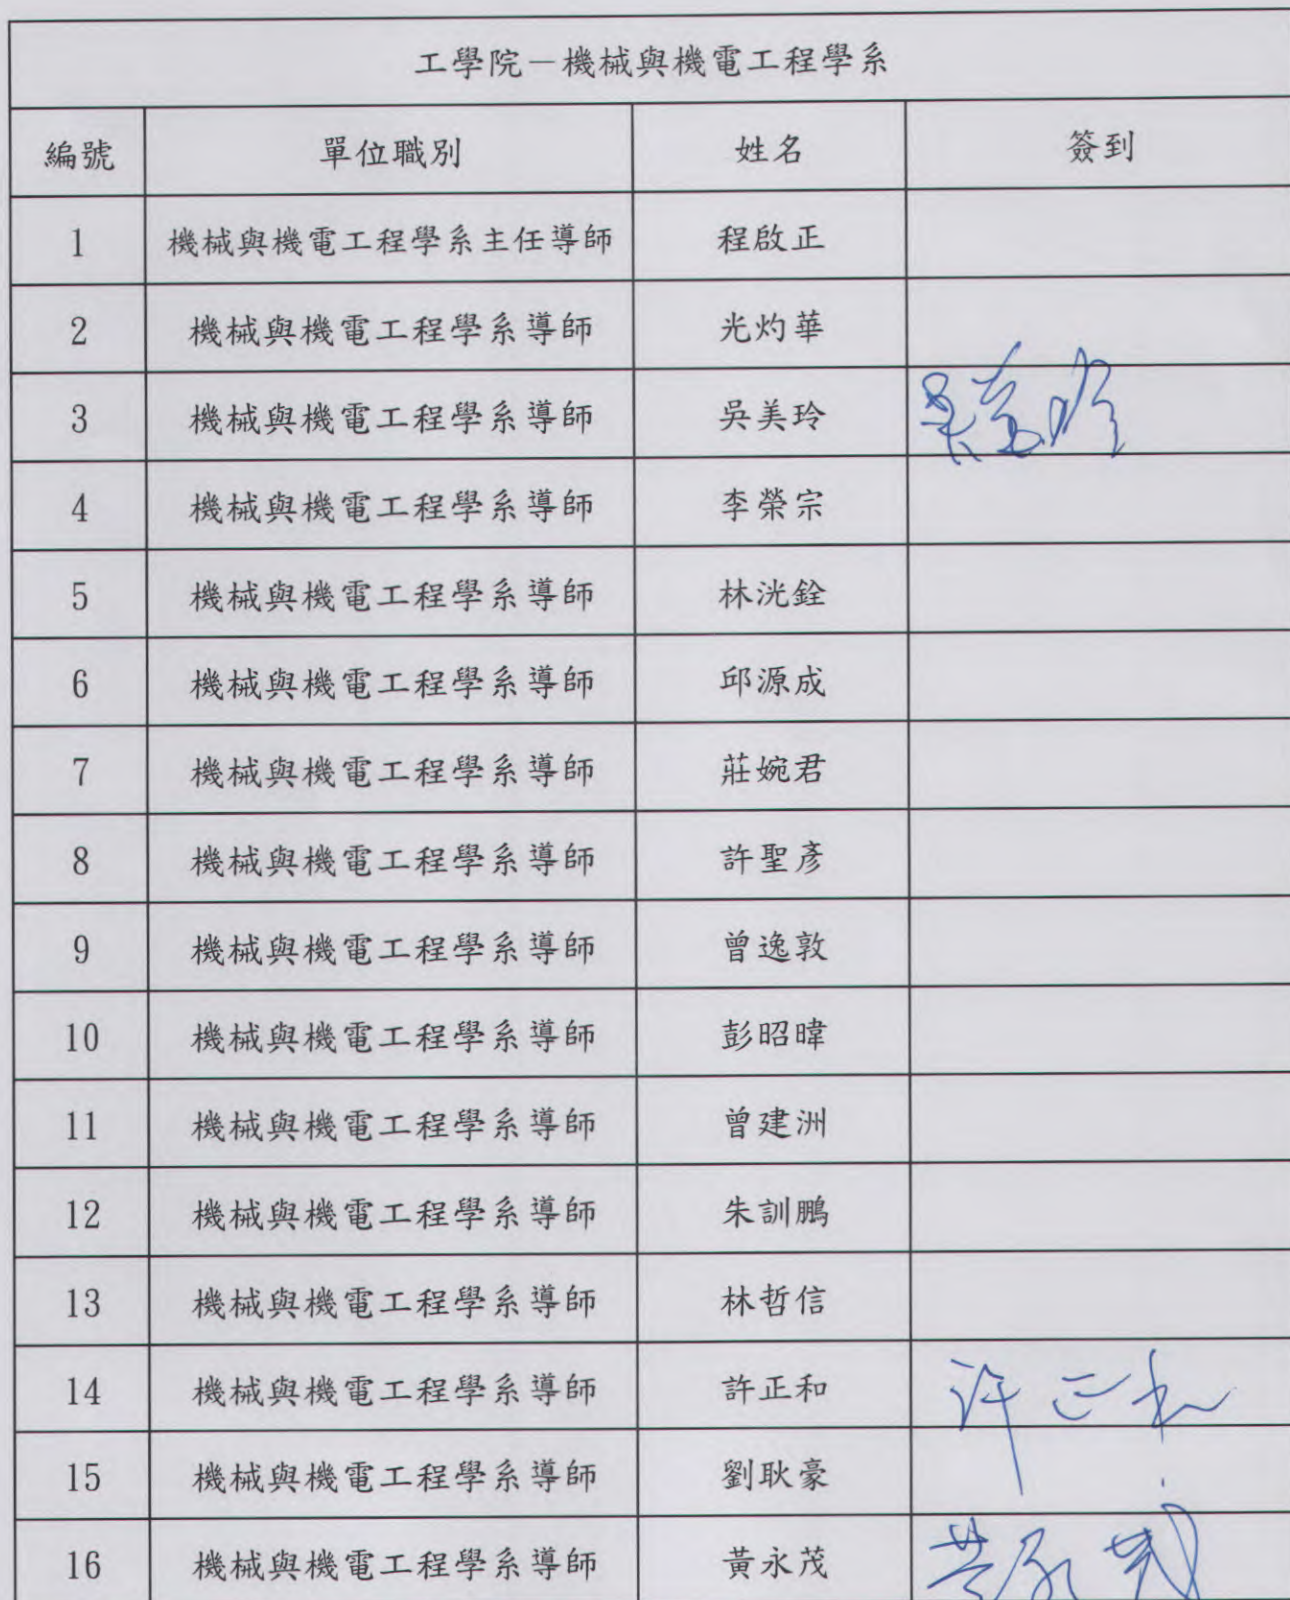 工學院－機械與機電工程學系
編號 單位職別 姓名 簽到
1 機械與機電工程學系主任導師 程啟正
2 機械與機電工程學系導師 光灼華
3 機械與機電工程學系導師 吳美玲 吳美玲
4 機械與機電工程學系導師 李榮宗
5 機械與機電工程學系導師 林洸銓
6 機械與機電工程學系導師 邱源成
7 機械與機電工程學系導師 莊婉君
8 機械與機電工程學系導師 許聖彥
9 機械與機電工程學系導師 曾逸敦
10 機械與機電工程學系導師 彭昭暐
11 機械與機電工程學系導師 曾建洲
12 機械與機電工程學系導師 朱訓鵬
13 機械與機電工程學系導師 林哲信
14 機械與機電工程學系導師 許正和 许正和
15 機械與機電工程學系導師 劉耿豪
16 機械與機電工程學系導師 黃永茂 黃永茂